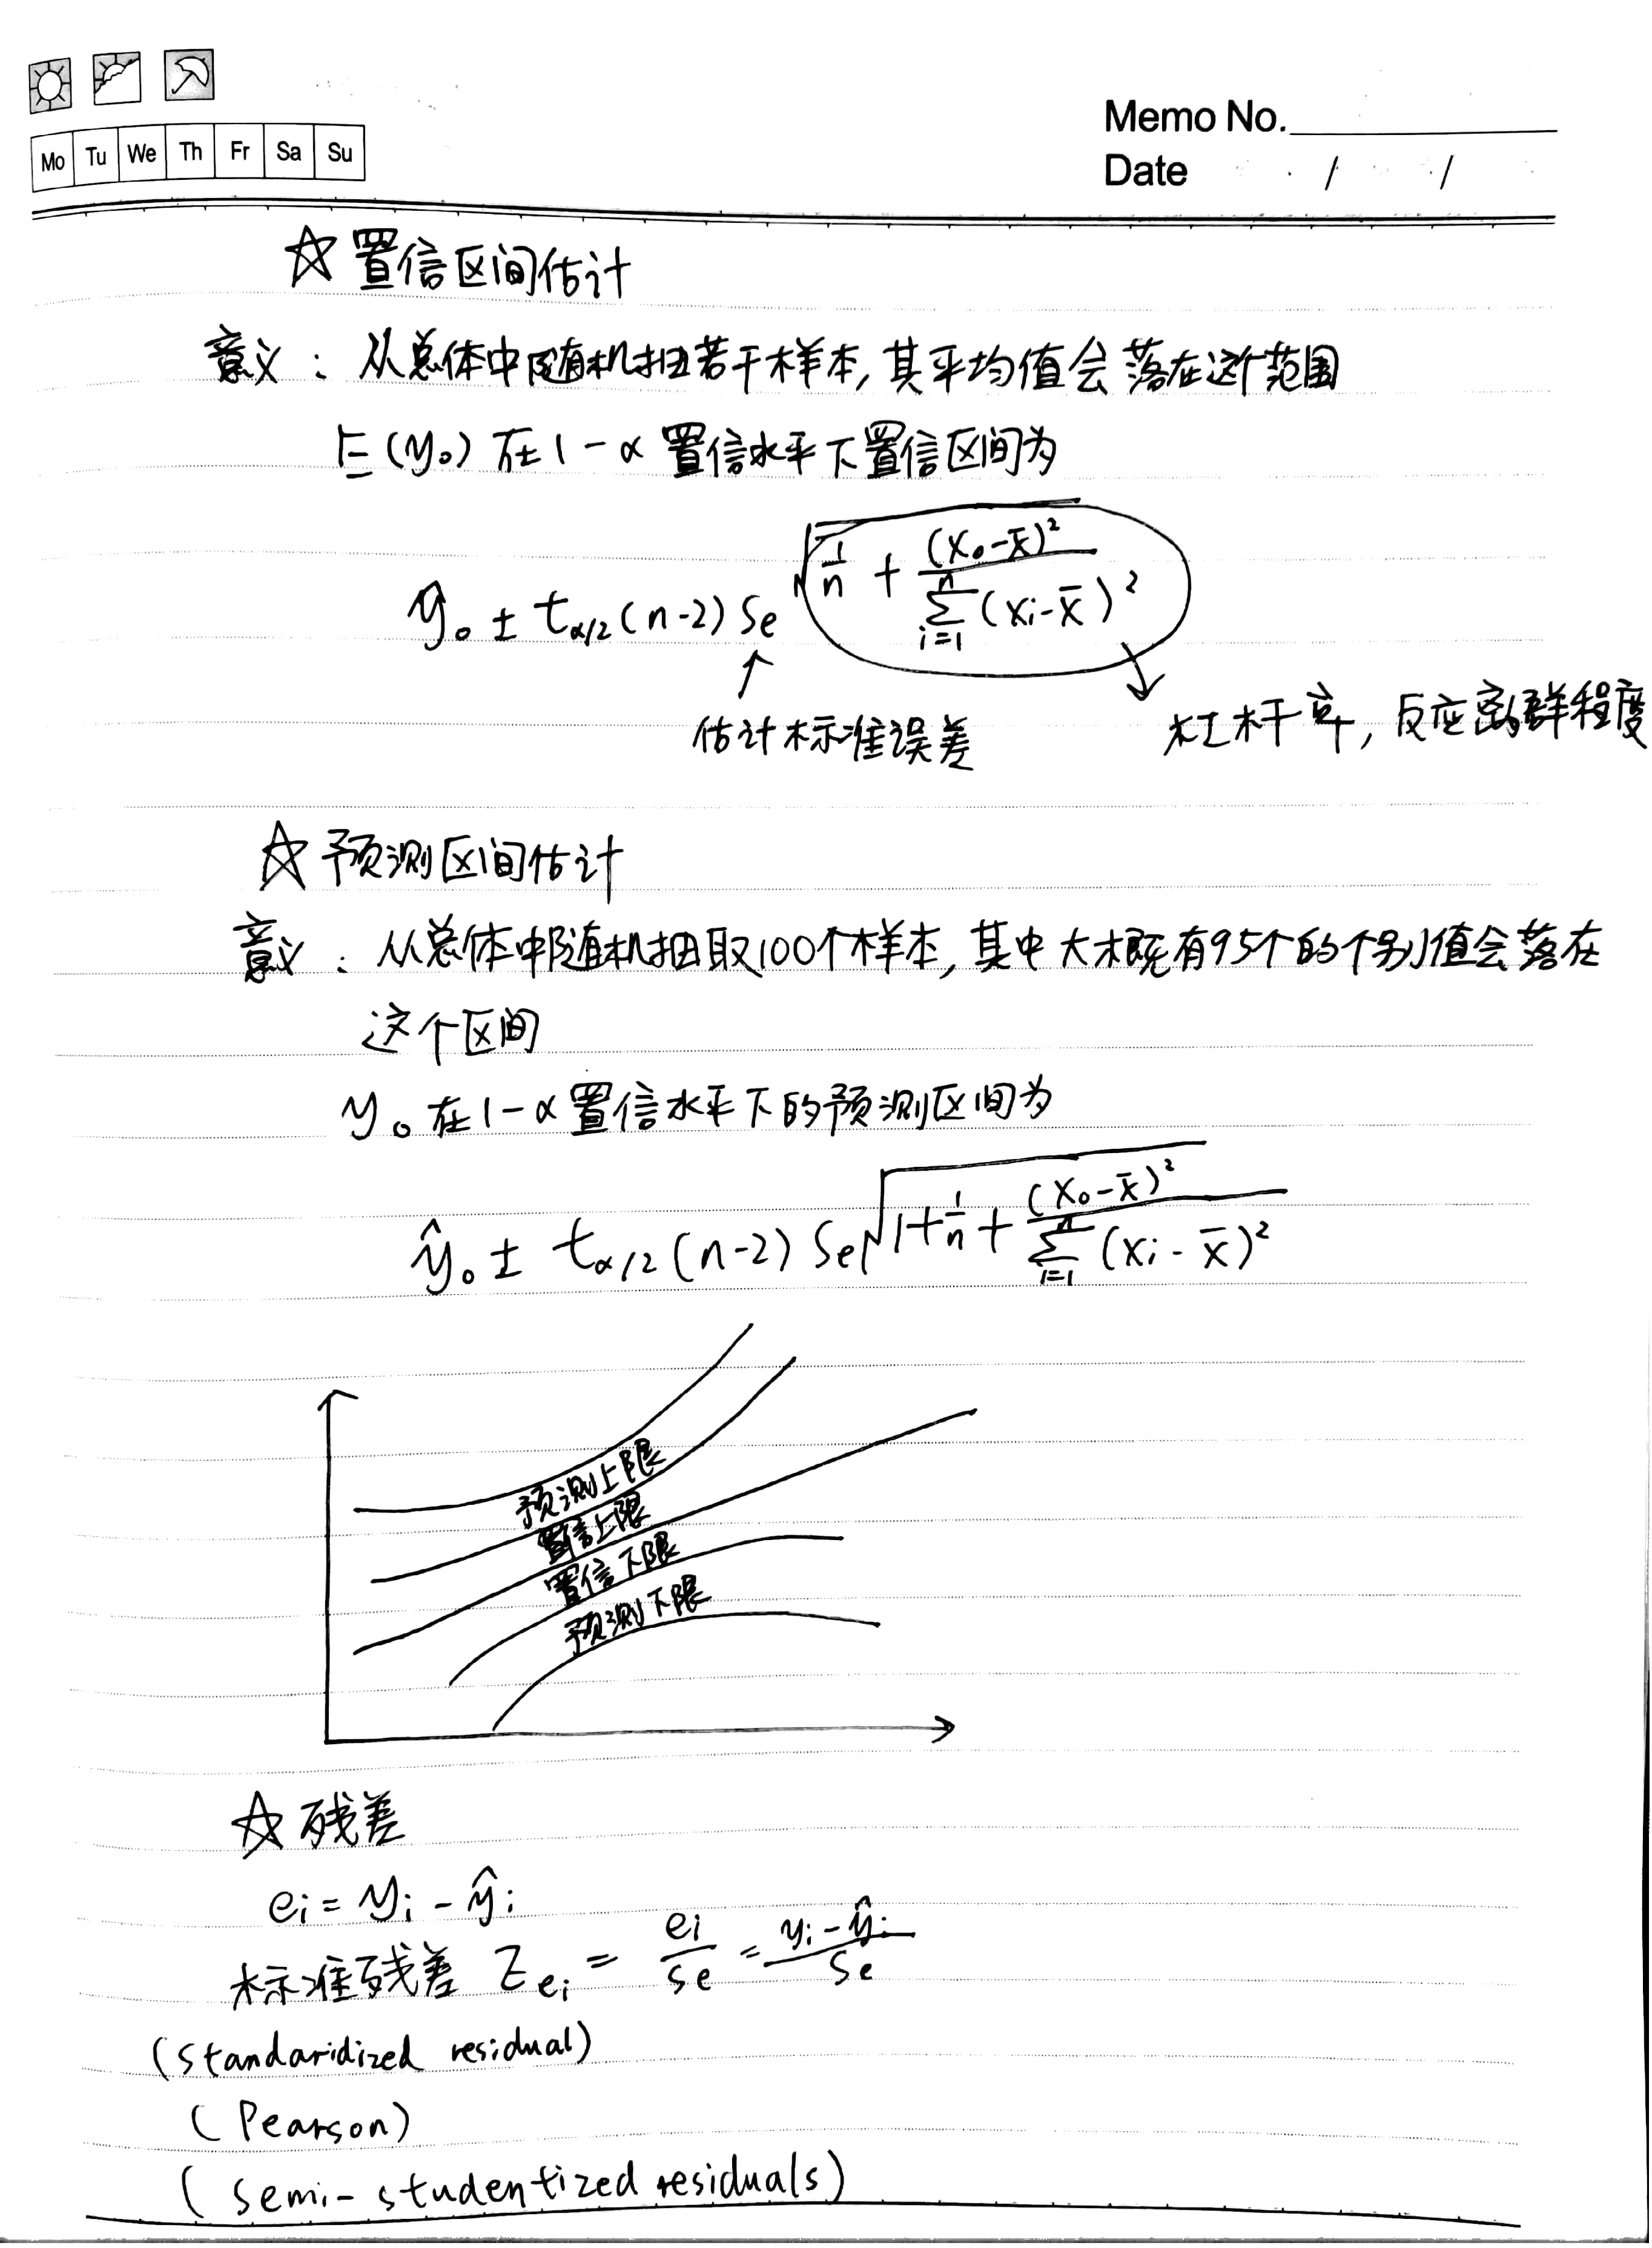 Mo Tu We Th Fr Sa Su
Memo No.
Date / /
☆ 置信区间估计
意义：从总体中随机抽若干样本，其平均值会落在这个范围
E(y₀) 在 1-α 置信水平下置信区间为
ŷ₀ ± t_{α/2}(n-2) Se √(1/n + (x₀-x̄)²/∑_{i=1}^{n}(xi-x̄)²)
↑ ↘
估计标准误差 杠杆率，反应离群程度
☆ 预测区间估计
意义：从总体中随机抽取100个样本，其中大概有95个的个别值会落在
这个区间
y₀ 在 1-α 置信水平下的预测区间为
ŷ₀ ± t_{α/2}(n-2) Se √(1+1/n + (x₀-x̄)²/∑_{i=1}^{n}(xi-x̄)²)
预测上限
置信上限
置信下限
预测下限
☆ 残差
ei = yi - ŷi
标准残差 Z_{ei} = ei/Se = (yi-ŷi)/Se
(standaridized residual)
(Pearson)
(semi-studentized residuals)